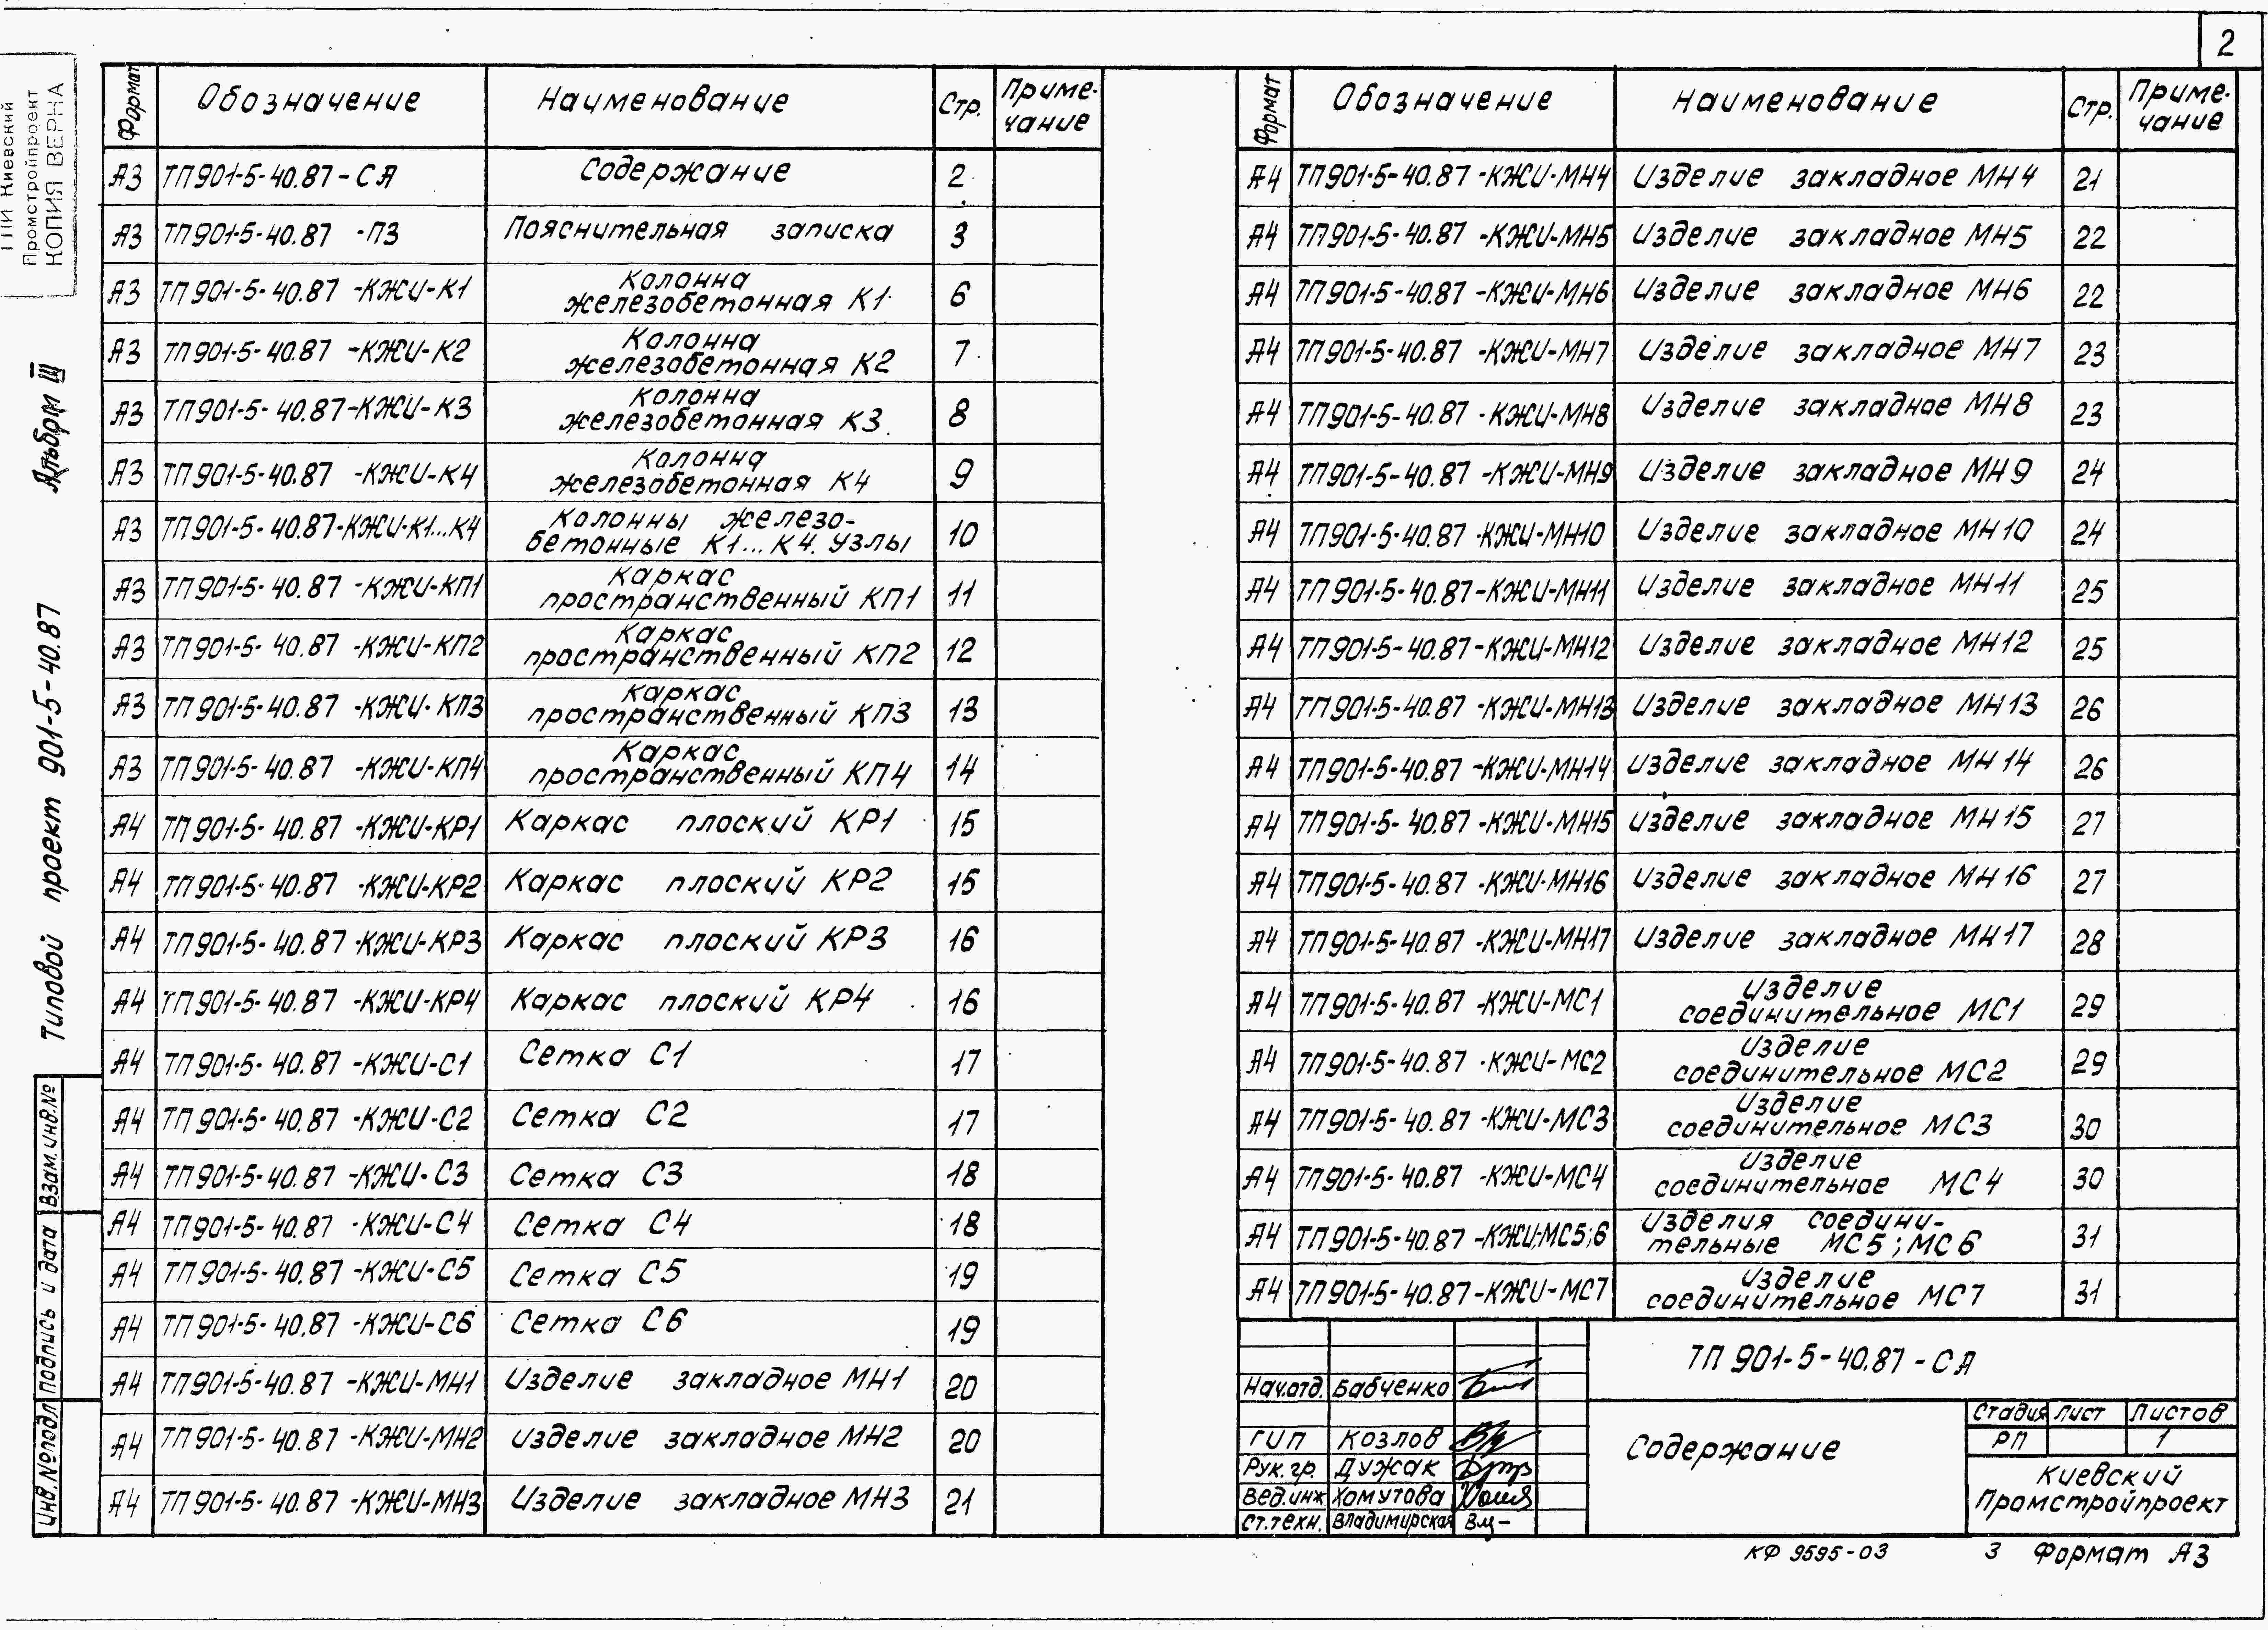 2
ГПИ Киевский
Промстройпроект
КОПИЯ ВЕРНА
Альбом III
Типовой проект 901-5-40.87
Взам. инв. №
Подпись и дата
Инв. № подл
Формат Обозначение Наименование Стр. Приме-
чание
А3 ТП 901-5-40.87-СА Содержание 2
А3 ТП 901-5-40.87 -ПЗ Пояснительная записка 3
А3 ТП 901-5-40.87 -КЖИ-К1 Колонна
железобетонная К1 6
А3 ТП 901-5-40.87 -КЖИ-К2 Колонна
железобетонная К2 7
А3 ТП 901-5-40.87-КЖИ-К3 Колонна
железобетонная К3 8
А3 ТП 901-5-40.87 -КЖИ-К4 Колонна
железобетонная К4 9
А3 ТП 901-5-40.87-КЖИ-К1...К4 Колонны железо-
бетонные К1...К4. Узлы 10
А3 ТП 901-5-40.87 -КЖИ-КП1 Каркас
пространственный КП1 11
А3 ТП 901-5-40.87 -КЖИ-КП2 Каркас
пространственный КП2 12
А3 ТП 901-5-40.87 -КЖИ-КП3 Каркас
пространственный КП3 13
А3 ТП 901-5-40.87 -КЖИ-КП4 Каркас
пространственный КП4 14
А4 ТП 901-5-40.87 -КЖИ-КР1 Каркас плоский КР1 15
А4 ТП 901-5-40.87 -КЖИ-КР2 Каркас плоский КР2 15
А4 ТП 901-5-40.87 -КЖИ-КР3 Каркас плоский КР3 16
А4 ТП 901-5-40.87 -КЖИ-КР4 Каркас плоский КР4 16
А4 ТП 901-5-40.87 -КЖИ-С1 Сетка С1 17
А4 ТП 901-5-40.87 -КЖИ-С2 Сетка С2 17
А4 ТП 901-5-40.87 -КЖИ-С3 Сетка С3 18
А4 ТП 901-5-40.87 -КЖИ-С4 Сетка С4 18
А4 ТП 901-5-40.87 -КЖИ-С5 Сетка С5 19
А4 ТП 901-5-40.87 -КЖИ-С6 Сетка С6 19
А4 ТП 901-5-40.87 -КЖИ-МН1 Изделие закладное МН1 20
А4 ТП 901-5-40.87 -КЖИ-МН2 Изделие закладное МН2 20
А4 ТП 901-5-40.87 -КЖИ-МН3 Изделие закладное МН3 21
Формат Обозначение Наименование Стр. Приме-
чание
А4 ТП 901-5-40.87 -КЖИ-МН4 Изделие закладное МН4 21
А4 ТП 901-5-40.87 -КЖИ-МН5 Изделие закладное МН5 22
А4 ТП 901-5-40.87 -КЖИ-МН6 Изделие закладное МН6 22
А4 ТП 901-5-40.87 -КЖИ-МН7 Изделие закладное МН7 23
А4 ТП 901-5-40.87 -КЖИ-МН8 Изделие закладное МН8 23
А4 ТП 901-5-40.87 -КЖИ-МН9 Изделие закладное МН9 24
А4 ТП 901-5-40.87 -КЖИ-МН10 Изделие закладное МН10 24
А4 ТП 901-5-40.87-КЖИ-МН11 Изделие закладное МН11 25
А4 ТП 901-5-40.87-КЖИ-МН12 Изделие закладное МН12 25
А4 ТП 901-5-40.87 -КЖИ-МН13 Изделие закладное МН13 26
А4 ТП 901-5-40.87 -КЖИ-МН14 Изделие закладное МН14 26
А4 ТП 901-5-40.87 -КЖИ-МН15 Изделие закладное МН15 27
А4 ТП 901-5-40.87 -КЖИ-МН16 Изделие закладное МН16 27
А4 ТП 901-5-40.87 -КЖИ-МН17 Изделие закладное МН17 28
А4 ТП 901-5-40.87 -КЖИ-МС1 Изделие
соединительное МС1 29
А4 ТП 901-5-40.87 -КЖИ-МС2 Изделие
соединительное МС2 29
А4 ТП 901-5-40.87 -КЖИ-МС3 Изделие
соединительное МС3 30
А4 ТП 901-5-40.87 -КЖИ-МС4 Изделие
соединительное МС4 30
А4 ТП 901-5-40.87 -КЖИ-МС5;6 Изделия соедини-
тельные МС5; МС6 31
А4 ТП 901-5-40.87-КЖИ-МС7 Изделие
соединительное МС7 31
ТП 901-5-40.87-СА
Нач.отд. Бабченко
ГИП Козлов
Рук. гр. Дужак
Вед.инж. Хомутова
Ст.техн. Владимирская
Содержание
Стадия Лист Листов
РП 1
Киевский
Промстройпроект
КФ 9595-03 3 Формат А3